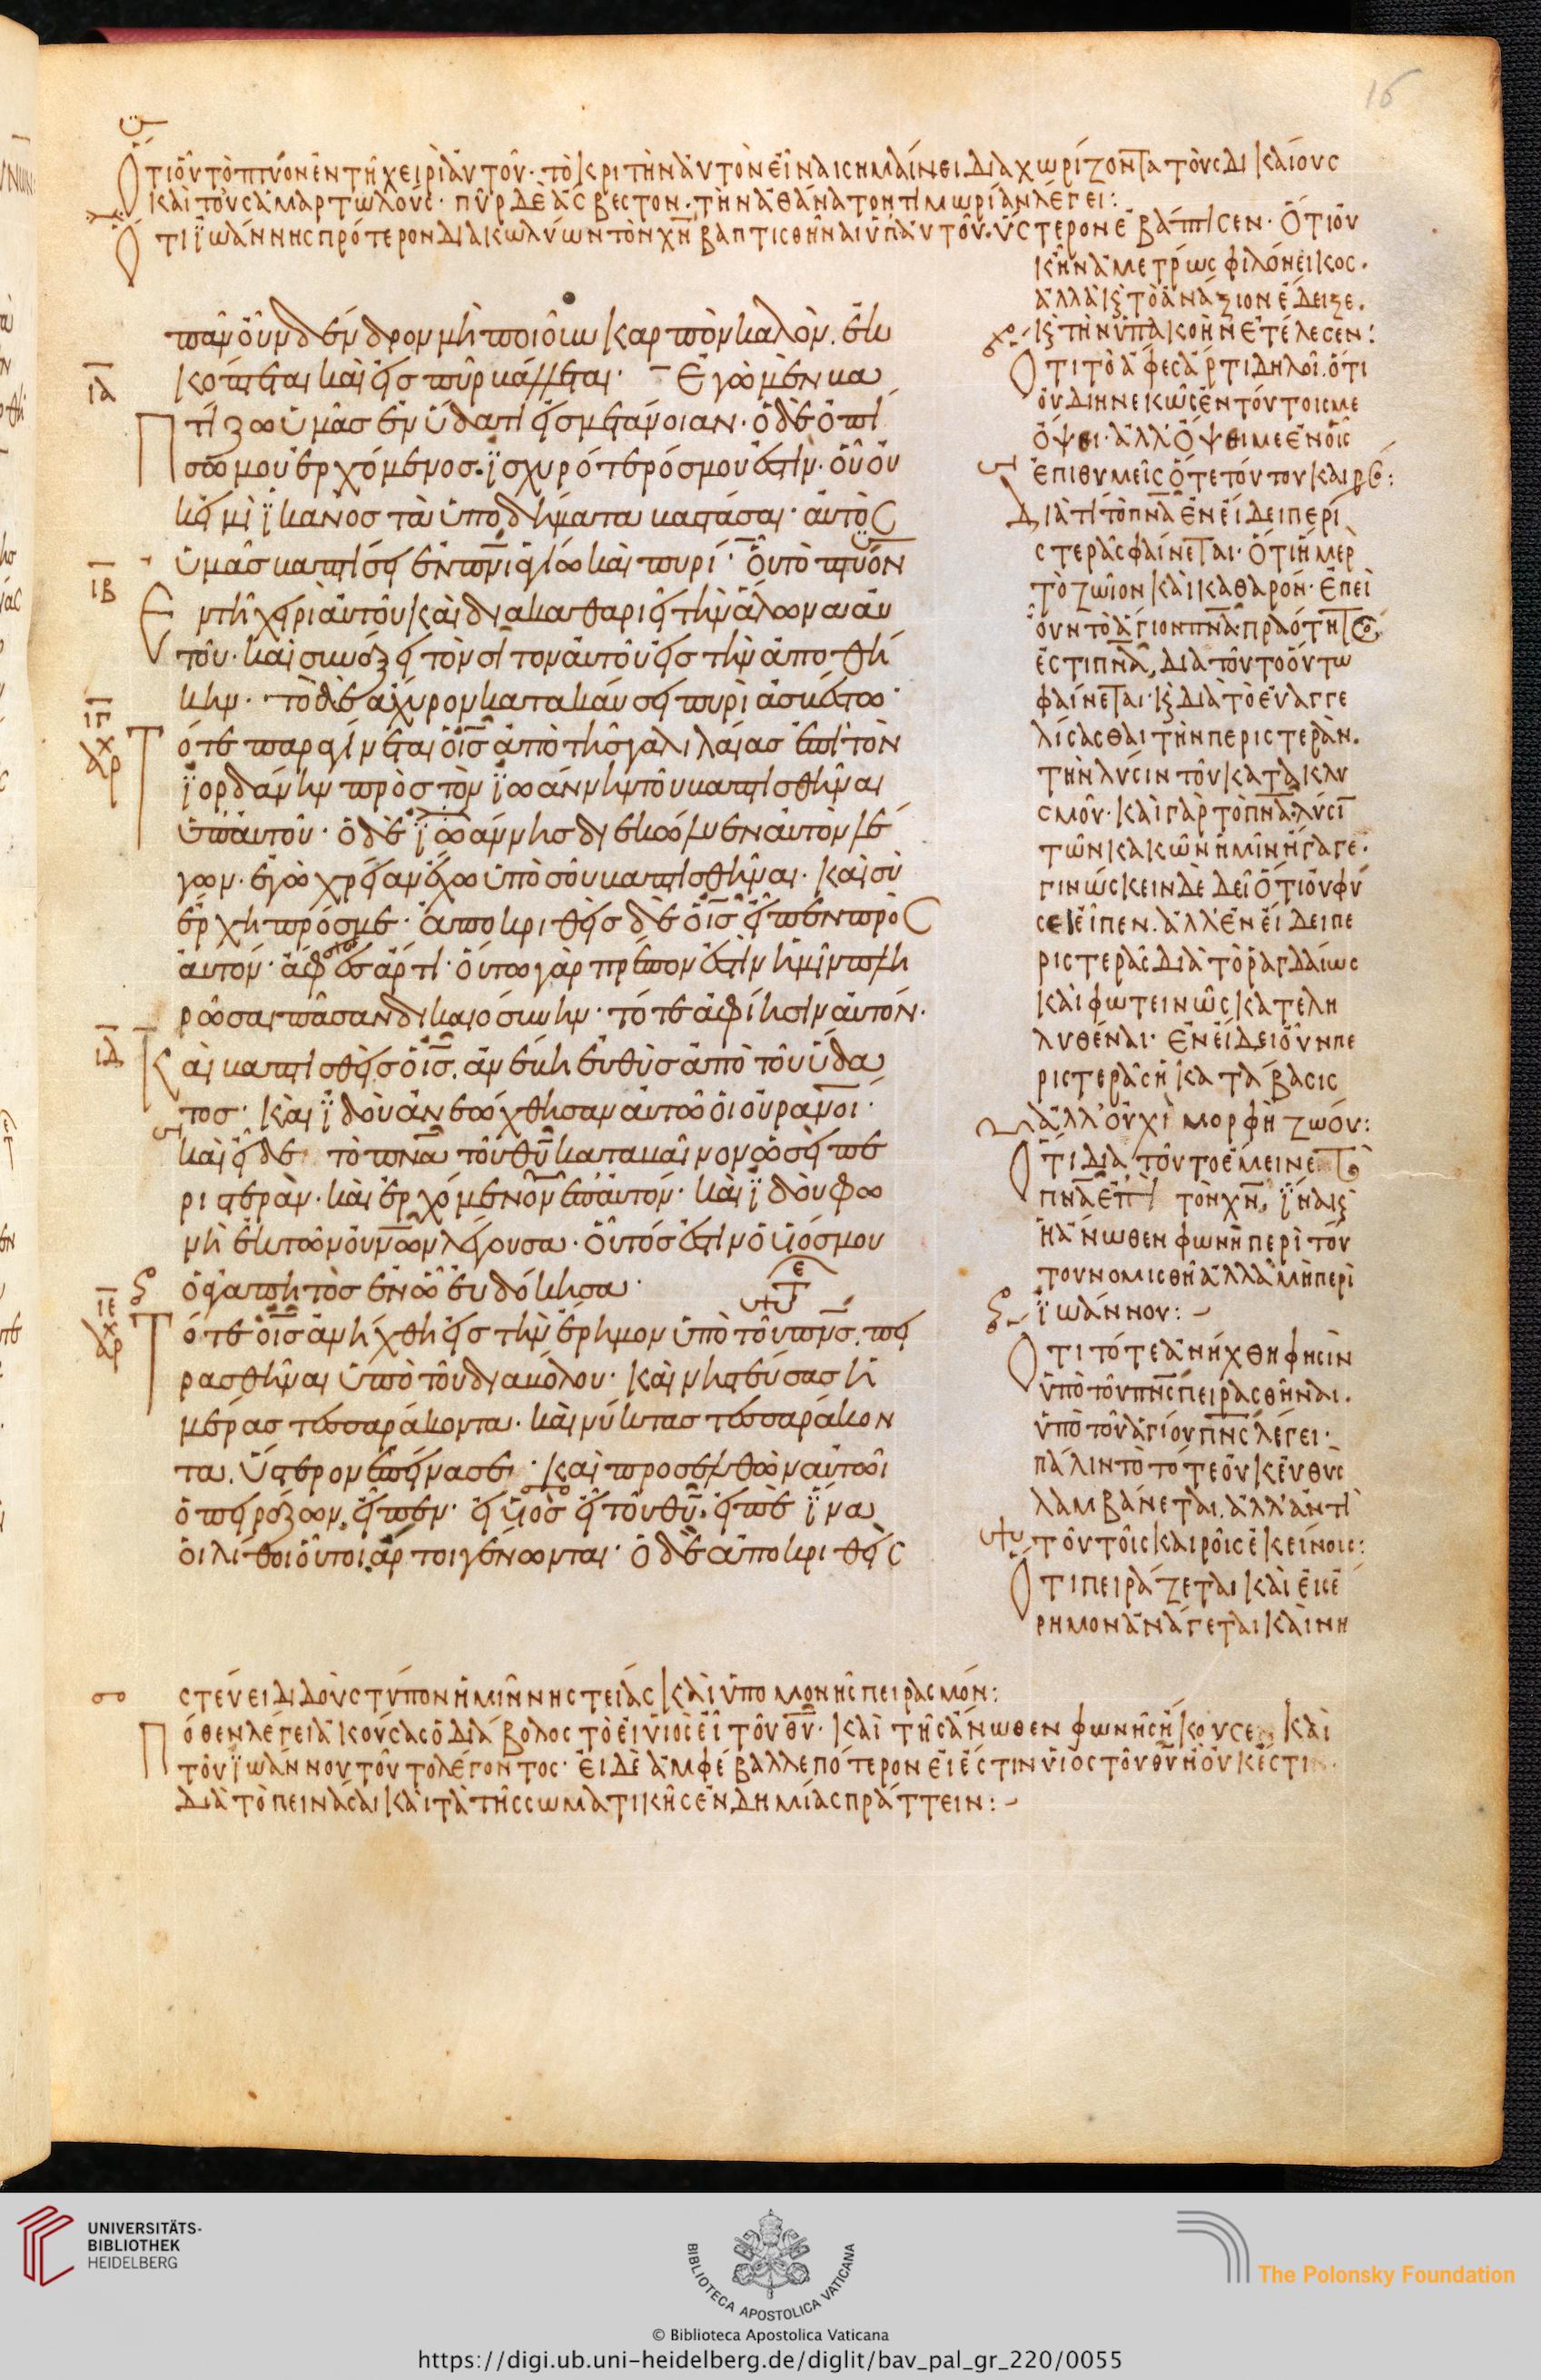 16
Ὅτι οὖν τὸ πτύον ἐν τῆ χειρὶ αὐτοῦ· τὸ κριτὴν αὐτὸν εἶναι σημαίνει διαχωρίζοντα τοὺς δικαίους
καὶ τοὺς ἁμαρτωλούς· πῦρ δὲ ἄσβεστον· τὴν ἀθάνατον τιμωρίαν λέγει:
Ὅτι ϊωάννης πρότερον διακωλύων τὸν χ̅ν̅ βαπτισθῆναι ὑπ' αὐτοῦ· ὕστερον ἐβάπτισεν· Ὅτι οὐ
πᾶν οὖν δένδρον μὴ ποιοῦν καρπὸν καλὸν· ἐκ
κόπτεται καὶ εἰς πῦρ βάλλεται· Ἐγὼ μὲν βα
πτίζω ὑμᾶς ἐν ὕδατι εἰς μετάνοιαν· ὁ δὲ ὀπί
σω μου ἐρχόμενος· ϊσχυρότερός μου ἐστὶν· οὗ οὐ
κ εἰμὶ ϊκανὸς τὰ ὑποδήματα βαστάσαι· αὐτὸς
ὑμᾶς βαπτίσει ἐν π̅ν̅ι̅ ἁγίω καὶ πυρί· Οὗ τὸ πτυόν
ἐν τῆ χειρὶ αὐτοῦ καὶ διακαθαριεῖ τὴν ἅλωνα αὐ
τοῦ· καὶ συνάξει τὸν σῖτον αὐτοῦ εἰς τὴν ἀποθή
κην· τὸ δὲ ἄχυρον κατακαύσει πυρὶ ἀσβέστω·
Τότε παραγίνεται ὁ ι̅ς̅ ἀπὸ τῆς γαλιλαίας ἐπὶ τὸν
ϊορδάνην πρὸς τὸν ϊωάννην τοῦ βαπτισθῆναι
ὑπ' αὐτοῦ· ὁ δὲ ϊωάννης διεκώλυεν αὐτὸν λέ
γων· ἐγὼ χρείαν ἔχω ὑπὸ σοῦ βαπτισθῆναι· καὶ σὺ
ἔρχη πρός με· ἀποκριθεὶς δὲ ὁ ι̅ς̅ εἶπεν πρὸς
αὐτόν· ἄφες ἄρτι· οὕτω γὰρ πρέπον ἐστὶν ἡμῖν πλη
ρῶσαι πᾶσαν δικαιοσύνην· τότε ἀφίησιν αὐτόν·
Καὶ βαπτισθεὶς ὁ ι̅ς̅· ἀνέβη εὐθὺς ἀπὸ τοῦ ὕδα
τος· καὶ ϊδοὺ ἀνεώχθησαν αὐτῶ οἱ οὐρανοι·
καὶ εἶδε τὸ π̅ν̅α̅ τοῦ θ̅υ̅ καταβαῖνον ὡσεὶ πε
ριστερὰν· καὶ ἐρχόμενον ἐπ' αὐτόν· καὶ ϊδοὺ φω
νὴ ἐκ τῶν οὐ̅ν̅ω̅ν λέγουσα· οὗτός ἐστιν ὁ υἱός μου
ὁ ἀγαπητὸς ἐν ὧ εὐδόκησα·
Τότε ὁ ι̅ς̅ ἀνήχθη εἰς τὴν ἔρημον ὑπὸ τοῦ π̅ν̅ς̅· πει
ρασθῆναι ὑπὸ τοῦ διαβόλου· καὶ νηστεύσας ἡ
μέρας τεσσαράκοντα· καὶ νύκτας τεσσαράκον
τα. ὕστερον ἐπείνασε· καὶ προσελθὼν αὐτῶ
ὁ πειράζων· εἶπεν· εἰ υἱὸς εἶ τοῦ θ̅υ̅· εἰπὲ ϊνα
οἱ λίθοι οὗτοι ἄρτοι γένωνται· ὁ δὲ ἀποκριθεὶς
ι̅α̅
ι̅β̅
ι̅γ̅
ι̅δ̅
ι̅ε̅
κ ἦν ἀμέτρως φιλόνεικος·
ἀλλὰ κ τὸ ἀνάξιον ἔδειξε·
κ τὴν ὑπακοὴν ἐτέλεσεν:
Ὅτι τὸ ἄφες ἄρτι δηλοῖ· ὅτι
οὐ διηνεκῶς ἐν τούτοις με
ὄψει· ἀλλ' ὄψει με ἐν οἷς
ἐπιθυμεῖς ὅτε τούτου καιρὸς:
Διατί τὸ π̅ν̅α̅ ἐν εἴδει περι
στερᾶς φαίνεται· Ὅτι ἥμερ
τὸ ζῶιον καὶ καθαρόν· Ἐπεὶ
οὖν τὸ ἅγιον π̅ν̅α̅· πραότητος
ἐστι π̅ν̅α̅, διὰ τοῦτο οὕτω
φαίνεται· κ διὰ τὸ εὐαγγε
λίσασθαι τὴν περιστερὰν·
τὴν λύσιν τοῦ κατακλυ
σμοῦ· καὶ γὰρ τὸ π̅ν̅α̅· λύσιν
τῶν κακῶν ἡμῖν ἤγαγε·
γινώσκειν δὲ δεῖ ὅτι οὐ φύ
σει εἶπεν· ἀλλ' ἐν εἴδει πε
ριστερᾶς διὰ τὸ ῥαγδαίως
καὶ φωτεινῶς κατελη
λυθέναι· ἐν εἴδει οὖν πε
ριστερᾶς ἡ κατάβασις
ἀλλ' οὐχὶ μορφὴ ζώου:
Ὅτι διὰ τοῦτο ἔμεινε τὸ
π̅ν̅α̅ ἐπὶ τὸν χ̅ν̅, ϊνα
ἡ ἄνωθεν φωνὴ περὶ τού
του νομισθῆ ἀλλὰ μὴ περὶ
ϊωάννου:
Ὅτι τότε ἀνήχθη φησὶν
ὑπὸ τοῦ π̅ν̅ς̅ πειρασθῆναι·
ὑπὸ τοῦ ἁγίου π̅ν̅ς̅ λέγει·
πάλιν τὸ τότε οὐκ εὐθὺς
λαμβάνεται· ἀλλ' ἀντὶ
τοῦ τοῖς καιροῖς ἐκείνοις:
Ὅτι πειράζεται καὶ εἰς ἔ
ρημον ἀνάγεται καὶ νη
στεύει διδοὺς τύπον ἡμῖν νηστείας καὶ ὑπομονῆς πειρασμόν:
Πόθεν λέγει ἀκούσας ὁ διάβολος τὸ εἰ υἱὸς εἶ τοῦ θ̅υ̅· καὶ τῆς ἄνωθεν φωνῆς ἤκουσε καὶ
τοῦ ϊωάννου τοῦτο λέγοντος· εἰ δὲ ἀμφέβαλλε πότερον εἰ ἐστιν υἱὸς τοῦ θ̅υ̅ ἢ οὐκ ἐστιν·
διὰ τὸ πεινάσαι καὶ τὰ τῆς σωματικῆς ἐνδημίας πράττειν:
UNIVERSITÄTS-
BIBLIOTHEK
HEIDELBERG
BIBLIOTECA APOSTOLICA VATICANA
The Polonsky Foundation
© Biblioteca Apostolica Vaticana
https://digi.ub.uni-heidelberg.de/diglit/bav_pal_gr_220/0055